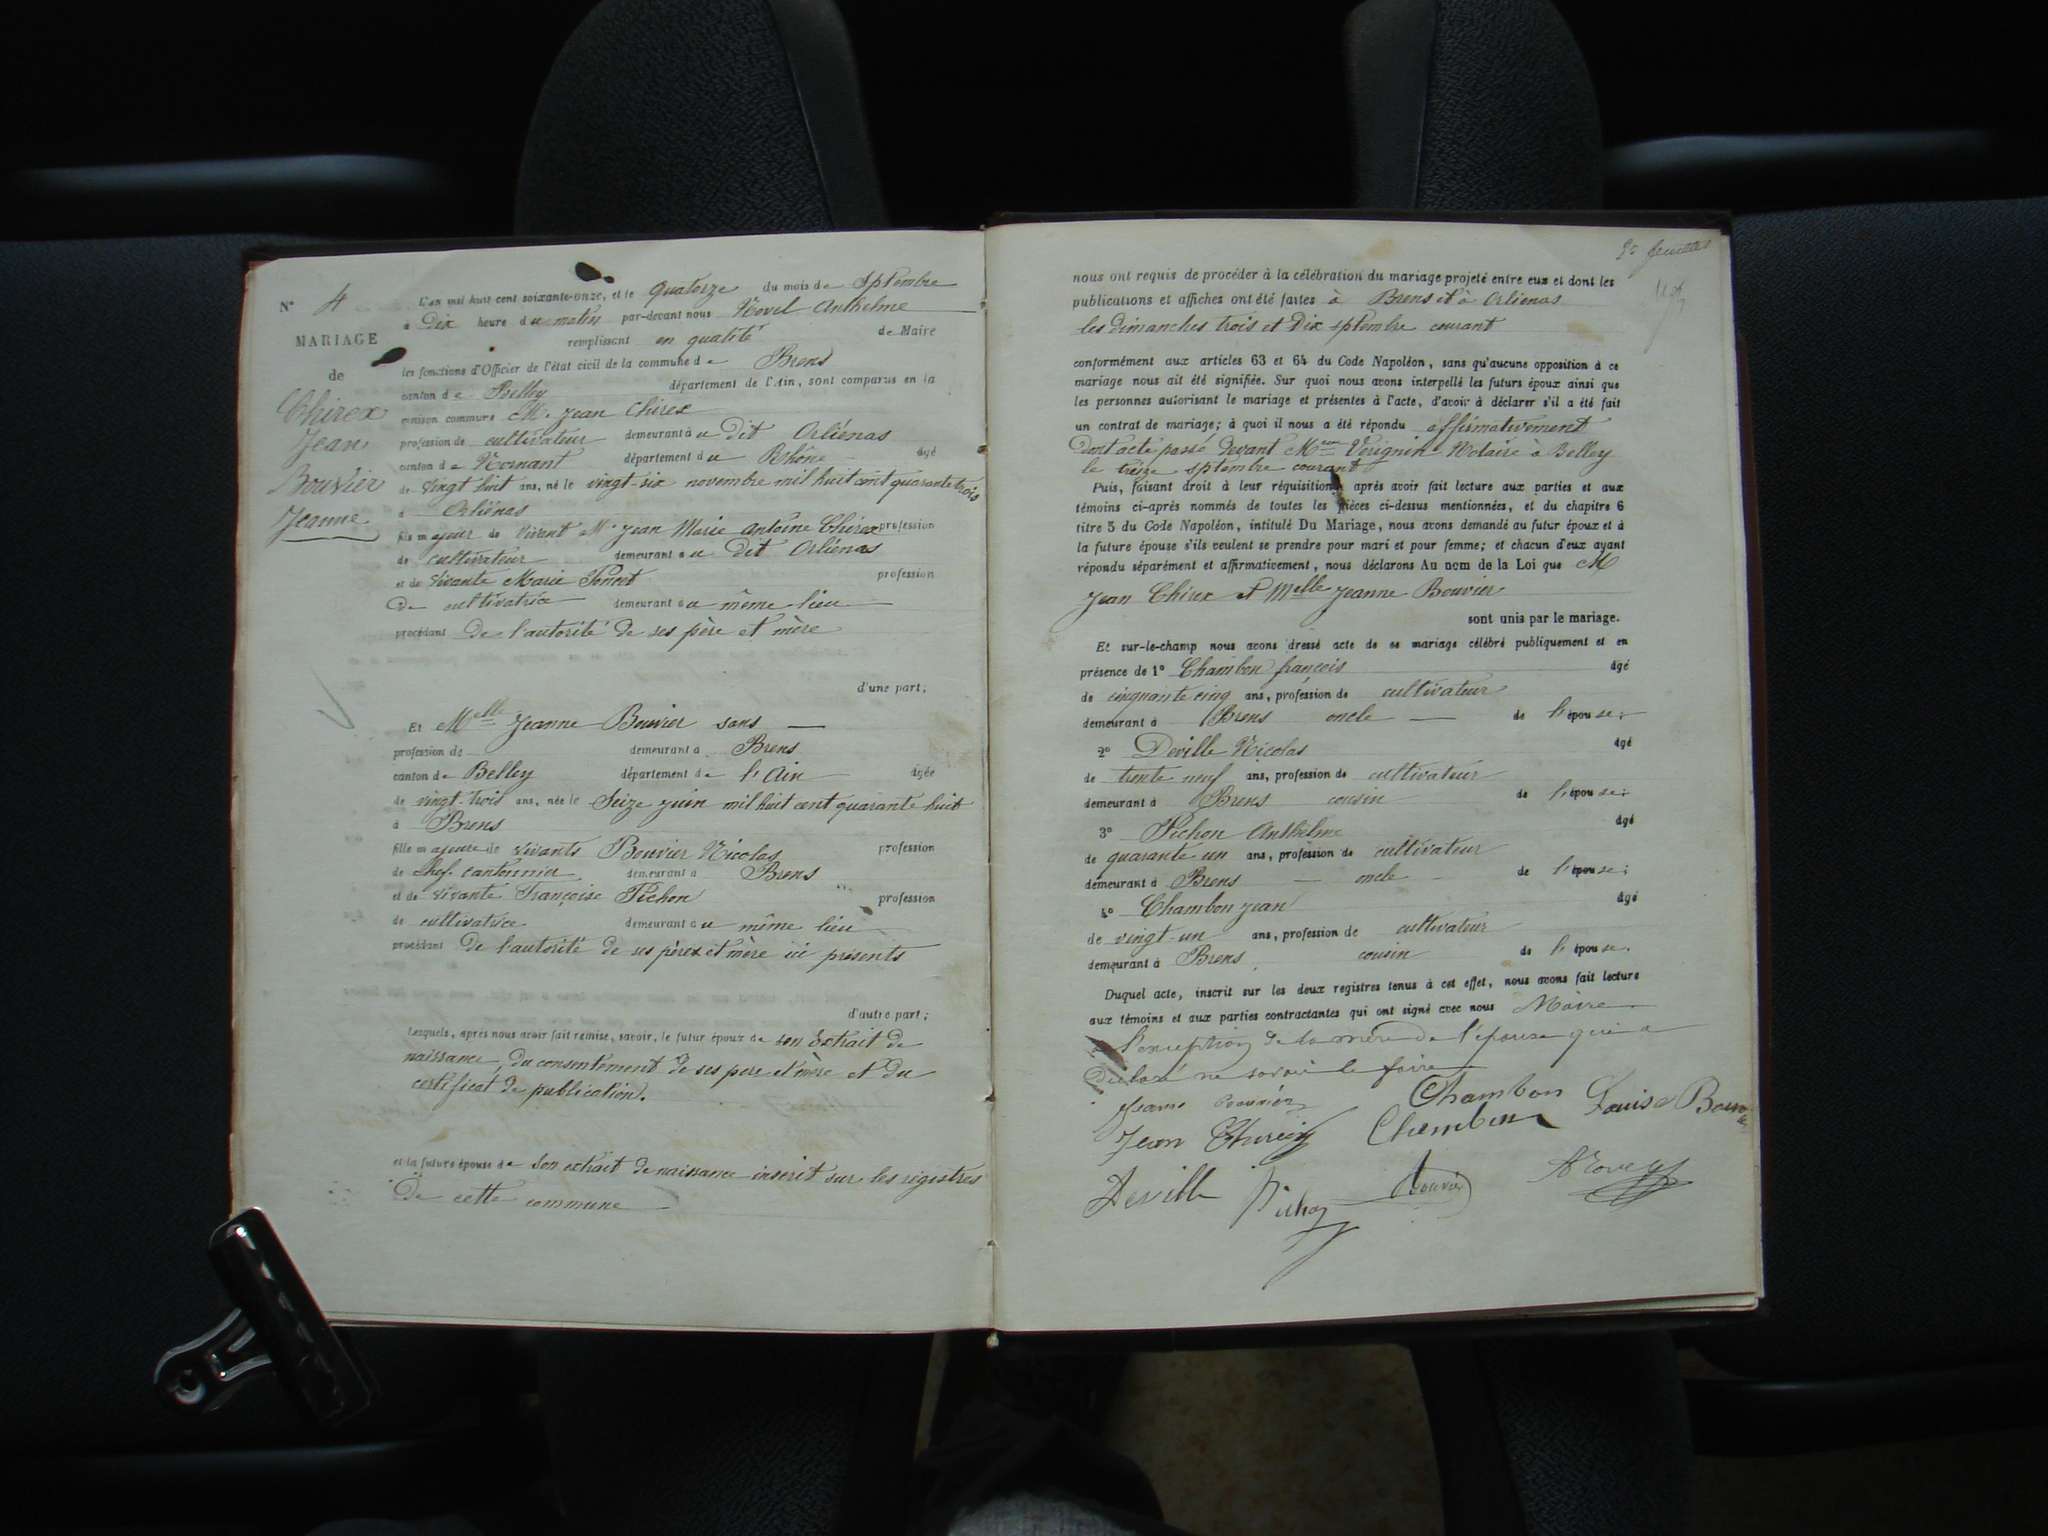 N° 4
MARIAGE
de
Thirex
Jean
Bouvier
Jeanne
L'an mil huit cent soixante-onze, et le quatorze du mois de Sptembre
à Dix heure du matin par-devant nous Novel Anthelme
remplissant en qualité de Maire
les fonctions d'Officier de l'état civil de la commune de Brens
canton de Belley département de l'Ain, sont comparus en la
maison commune M. Jean Chirex
profession de cultivateur demeurant à u dit Orliénas
canton de Mornant département du Rhône âgé
de vingt huit ans, né le vingt-six novembre mil huit cent quarante trois
à Orliénas
fils majeur de vivant Mr Jean Marie Antoine Chirex profession
de cultivateur demeurant au dit Orliénas
et de vivante Marie Poncet profession
De cultivatrice demeurant au même lieu
procédant de l'autorité de ses père et mère
d'une part;
Et Melle Jeanne Bouvier sans
profession de demeurant à Brens
canton de Belley département de l'Ain âgée
de vingt-trois ans, née le Seize juin mil huit cent quarante huit
à Brens
fille majeure de vivants Bouvier Nicolas profession
de Chef cantonnier demeurant à Brens
et de vivante Françoise Pichon profession
de cultivatrice demeurant au même lieu
procédant de l'autorité de ses pères et mère ici présents
d'autre part;
Lesquels, après nous avoir fait remise, savoir, le futur époux de son Extrait de
naissance, du consentement de ses pere et mère et du
certificat de publication.
et la future épouse de son extrait de naissance inscrit sur les registres
De cette commune
feuillet
nous ont requis de procéder à la célébration du mariage projeté entre eux et dont les
publications et affiches ont été faites à Brens et à Orlienas
les dimanches trois et Dix sptembre courant
conformément aux articles 63 et 64 du Code Napoléon, sans qu'aucune opposition à ce
mariage nous ait été signifiée. Sur quoi nous avons interpellé les futurs époux ainsi que
les personnes autorisant le mariage et présentes à l'acte, d'avoir à déclarer s'il a été fait
un contrat de mariage; à quoi il nous a été répondu affirmativement
Dont acte passé Devant Me Vérignin Notaire à Belley
le treize sptembre courant
Puis, faisant droit à leur réquisition, après avoir fait lecture aux parties et aux
témoins ci-après nommés de toutes les pièces ci-dessus mentionnées, et du chapitre 6
titre 5 du Code Napoléon, intitulé Du Mariage, nous avons demandé au futur époux et à
la future épouse s'ils veulent se prendre pour mari et pour femme; et chacun d'eux ayant
répondu séparément et affirmativement, nous déclarons Au nom de la Loi que M
Jean Chirex et Melle Jeanne Bouvier
sont unis par le mariage.
Et sur-le-champ nous avons dressé acte de ce mariage célébré publiquement et en
présence de 1° Chambon françois âgé
de cinquante cinq ans, profession de cultivateur
demeurant à Brens oncle de l'épouse;
2° Deville Nicolas âgé
de trente neuf ans, profession de cultivateur
demeurant à Brens cousin de l'épouse;
3° Pichon Anthelme âgé
de quarante un ans, profession de cultivateur
demeurant à Brens oncle de l'épouse;
4° Chambon Jean âgé
de vingt-un ans, profession de cultivateur
demeurant à Brens cousin de l'épouse.
Duquel acte, inscrit sur les deux registres tenus à cet effet, nous avons fait lecture
aux témoins et aux parties contractantes qui ont signé avec nous Maire
a l'exception de la mère de l'épouse qui a
Déclaré ne savoir le faire
Jeanne Bouvier Chambon Louise Bouv
Jean Thirex Chambon
Deville Pichon Bouvier Novel